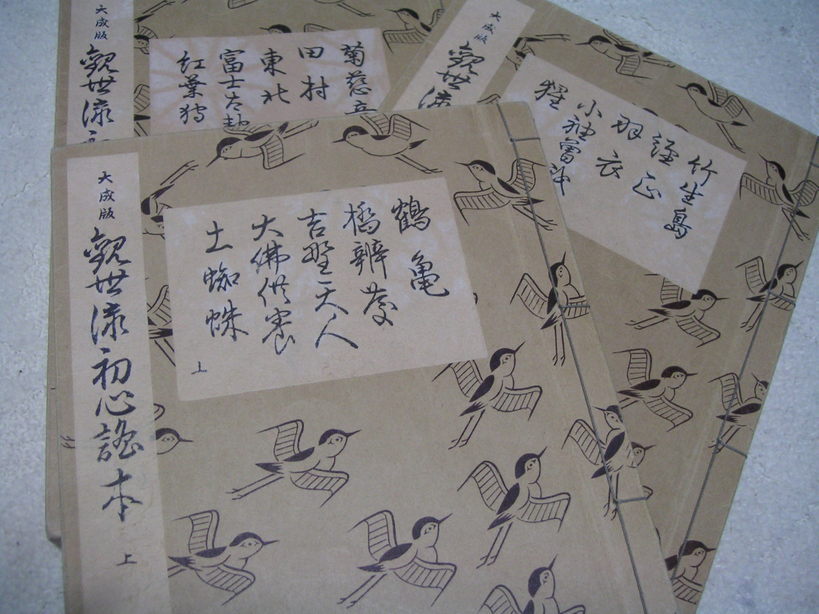 大成版
觀世流初心謠本
上
鶴亀
橋辨慶
吉野天人
大佛供養
土蜘蛛
上
大成版
觀世流初
菊慈童
田村
東北
富士太鼓
紅葉狩
大成版
觀世流
竹生島
經正
羽衣
小袖曽我
猩